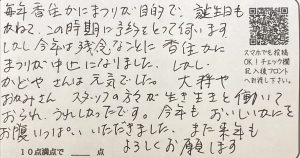 毎年香住かにまつりが目的で、誕生日も
かねて、この時期に予約をとって伺います
しかし今年は残念なことに香住かに
まつりが中止になりました。しかし
かどやさんは元気でした。大将や
おかみさん スタッフの方が生き生きと働いて
おられ、うれしかったです。今年もおいしいカニを
お腹いっぱいいただきました。また来年も
よろしくお願いします
10点満点で 点
スマホでも投稿
OK！チェック欄
記入後フロント
へお渡し下さい